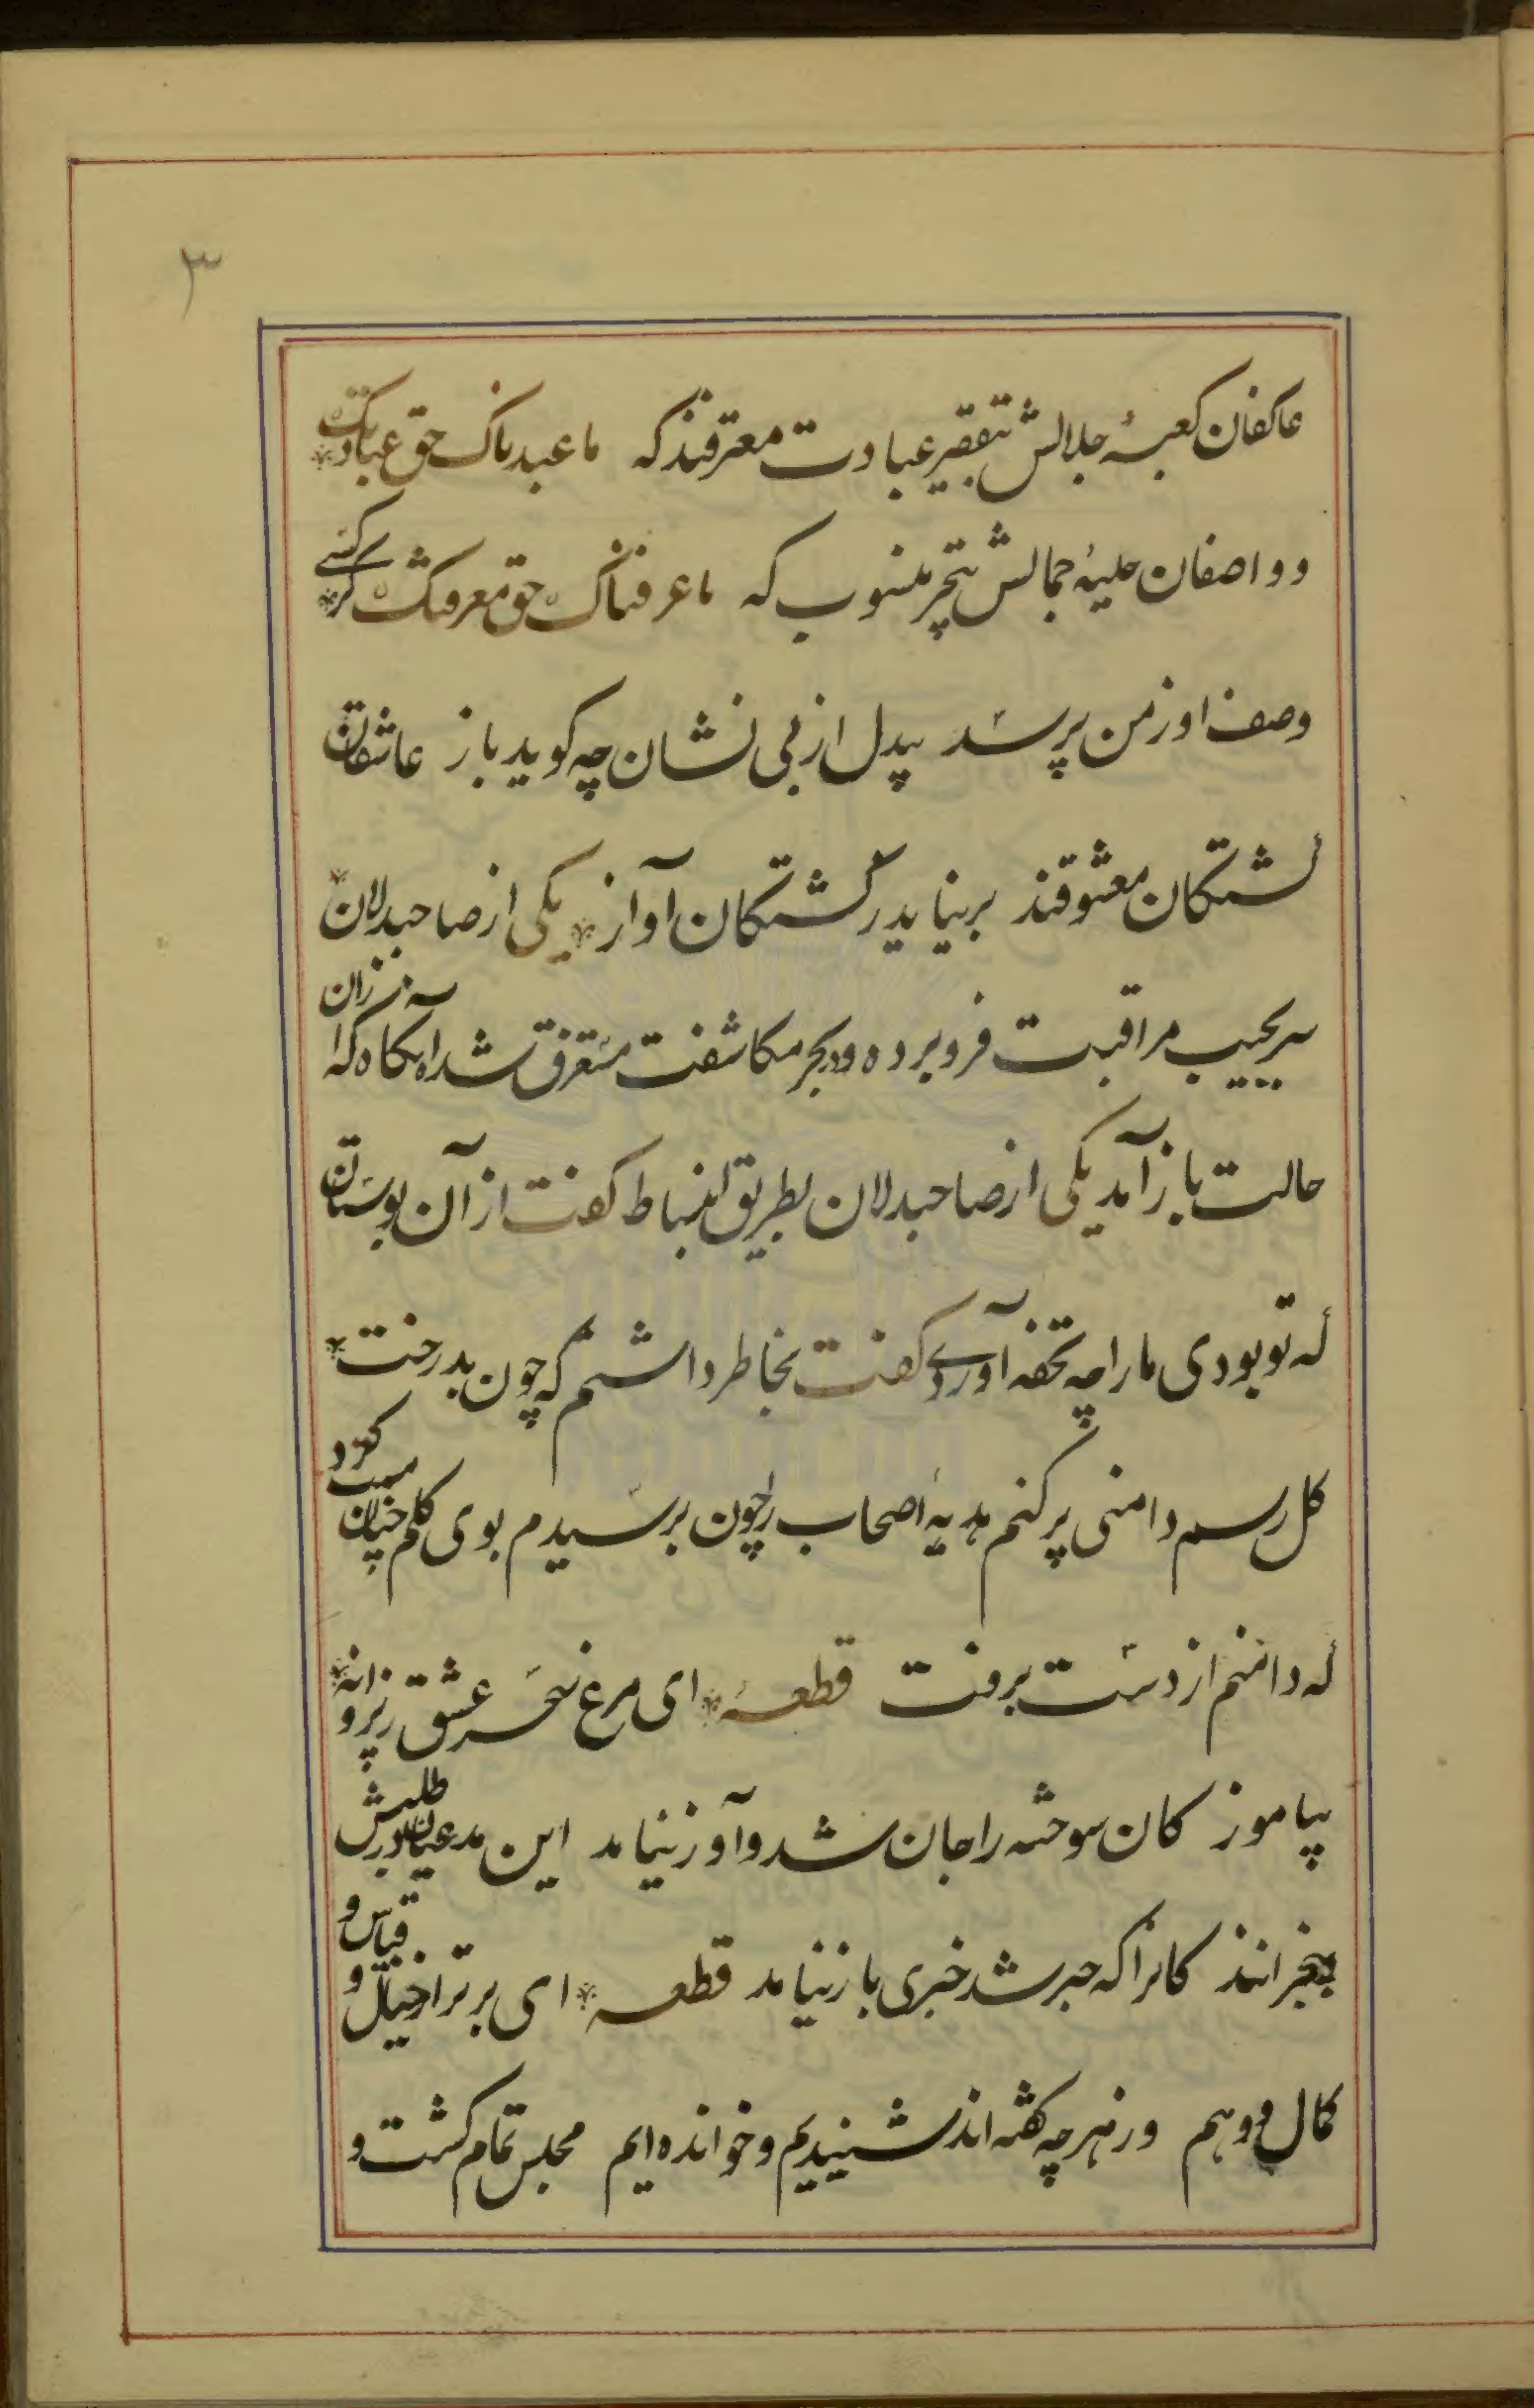 ۳
عاکفان کعبهٔ جلالش بتقصیر عبادت معترفند که ما عبدناک حق عبادتک
و واصفان حلیهٔ جمالش بتحیر منسوب که ما عرفناک حق معرفتک کر کسے
وصف او ز من پرسد بیدل از بی نشان چه کوید باز عاشقان
کشتکان معشوقند بر نیاید ز کشتکان آواز یکی از صاحبدلان
سر بجیب مراقبت فرو برده و در بحر مکاشفت مستغرق شده آنکاه که از آن
حالت باز آمد یکی از صاحبدلان بطریق انبساط کفت از آن بوستان
که تو بودی ما را چه تحفه آوردے کفت بخاطر داشتم که چون بدرخت
کل رسم دامنی پر کنم هدیهٔ اصحاب را چون برسیدم بوی کلم چنان مست کرد
که دامنم از دست برفت قطعه ای مرغ سحر عشق ز پروانه
بیاموز کان سوخته را جان شد و آواز نیامد این مدعیان در طلبش
بیخبرانند کانرا که خبر شد خبری باز نیامد قطعه ای برتر از خیال و قیاس و
کمال و وهم وز هر چه کفته اند شنیدیم و خوانده ایم مجلس تمام کشت و